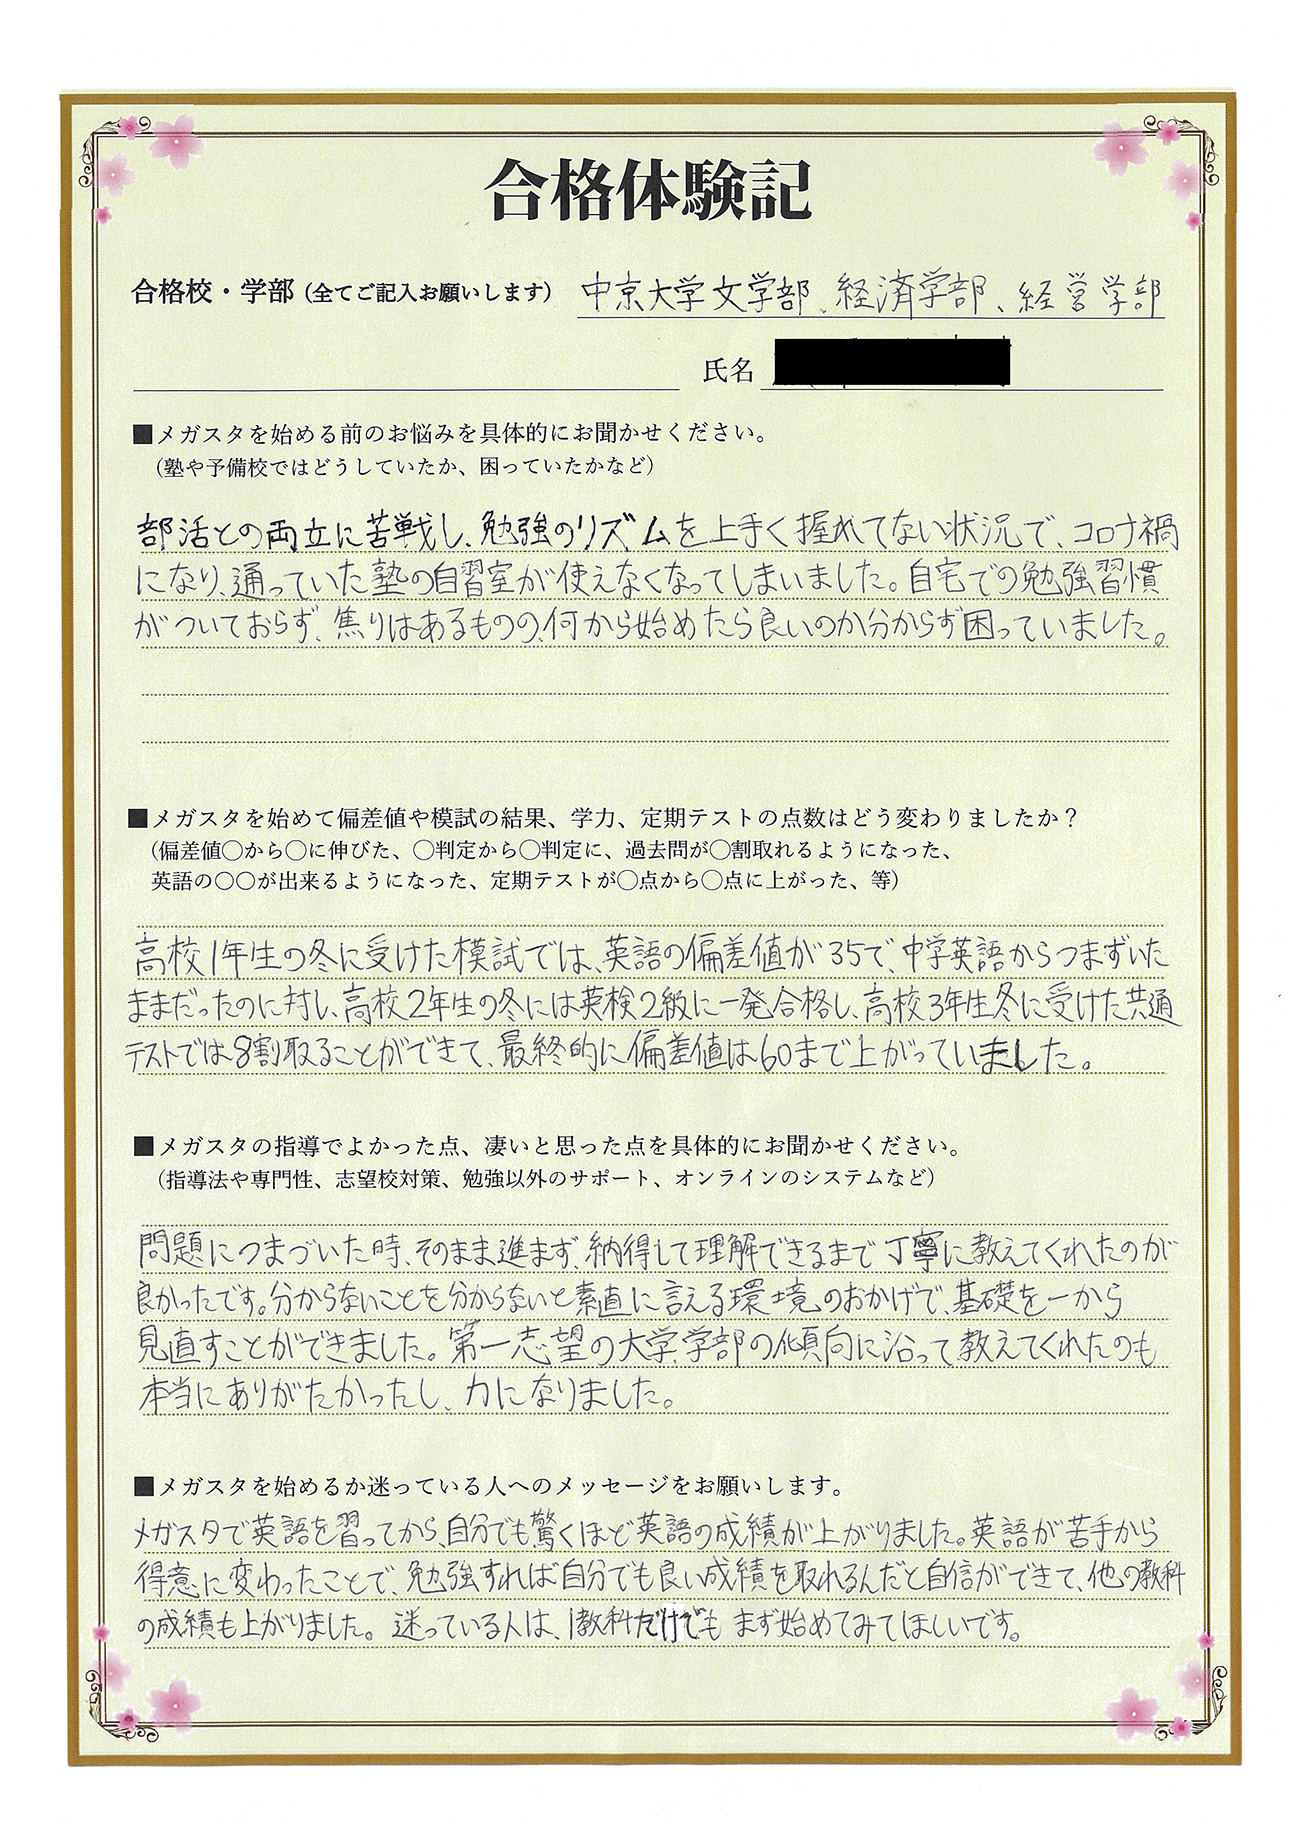 合格体験記
合格校・学部(全てご記入お願いします) 中京大学文学部、経済学部、経営学部
氏名
■メガスタを始める前のお悩みを具体的にお聞かせください。
(塾や予備校ではどうしていたか、困っていたかなど)
部活との両立に苦戦し、勉強のリズムを上手く握れてない状況で、コロナ禍
になり、通っていた塾の自習室が使えなくなってしまいました。自宅での勉強習慣
がついておらず、焦りはあるものの、何から始めたら良いのか分からず困っていました。
■メガスタを始めて偏差値や模試の結果、学力、定期テストの点数はどう変わりましたか？
(偏差値〇から〇に伸びた、〇判定から〇判定に、過去問が〇割取れるようになった、
英語の〇〇が出来るようになった、定期テストが〇点から〇点に上がった、等)
高校1年生の冬に受けた模試では、英語の偏差値が35で、中学英語からつまずいた
ままだったのに対し、高校2年生の冬には英検2級に一発合格し、高校3年生冬に受けた共通
テストでは8割取ることができて、最終的に偏差値は60まで上がっていました。
■メガスタの指導でよかった点、凄いと思った点を具体的にお聞かせください。
(指導法や専門性、志望校対策、勉強以外のサポート、オンラインのシステムなど)
問題につまづいた時、そのまま進まず、納得して理解できるまで丁寧に教えてくれたのが
良かったです。分からないことを分からないと素直に言える環境のおかげで、基礎を一から
見直すことができました。第一志望の大学、学部の傾向に沿って教えてくれたのも
本当にありがたかったし、力になりました。
■メガスタを始めるか迷っている人へのメッセージをお願いします。
メガスタで英語を習ってから、自分でも驚くほど英語の成績が上がりました。英語が苦手から
得意に変わったことで、勉強すれば自分でも良い成績を取れるんだと自信ができて、他の教科
の成績も上がりました。迷っている人は、1教科だけでもまず始めてみてほしいです。